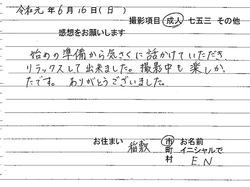 令和元年6月16日(日)
撮影項目 成人 七五三 その他
感想をお願いします
始めの準備から気さくに話かけていただき、
リラックスして出来ました。撮影中も楽しか
たです。ありがとうございました。
お住まい 稲敷 市 町 村
お名前 イニシャルで E.N